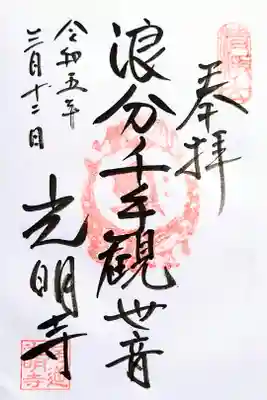 奉拝
浪分千手観世音
光明寺
令和五年
三月十二日